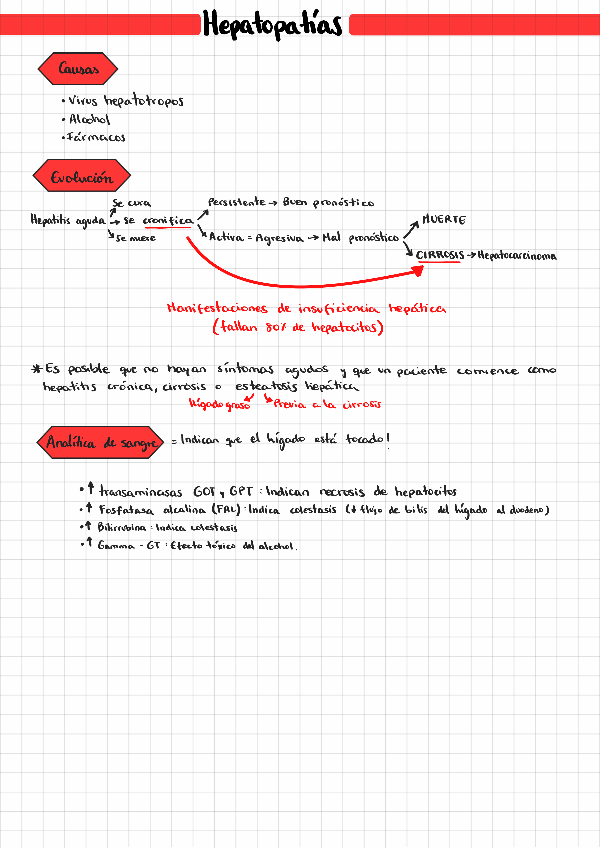 Hepatopatías
Causas
• Virus hepatotropos
• Alcohol
• Fármacos
Evolución
Se cura
Persistente → Buen pronóstico
Hepatitis aguda → se cronifica
MUERTE
Se muere
Activa = Agresiva → Mal pronóstico
CIRROSIS → Hepatocarcinoma
Manifestaciones de insuficiencia hepática
(fallan 80% de hepatocitos)
* Es posible que no hayan síntomas agudos y que un paciente comience como
hepatitis crónica, cirrosis o esteatosis hepática
Hígado graso Previa a la cirrosis
Analítica de sangre = Indican que el hígado está tocado!
• ↑ transaminasas GOT y GPT : Indican necrosis de hepatocitos
• ↑ Fosfatasa alcalina (FAL) : Indica colestasis (↓ flujo de bilis del hígado al duodeno)
• ↑ Bilirrubina : Indica colestasis
• ↑ Gamma - GT : Efecto tóxico del alcohol.